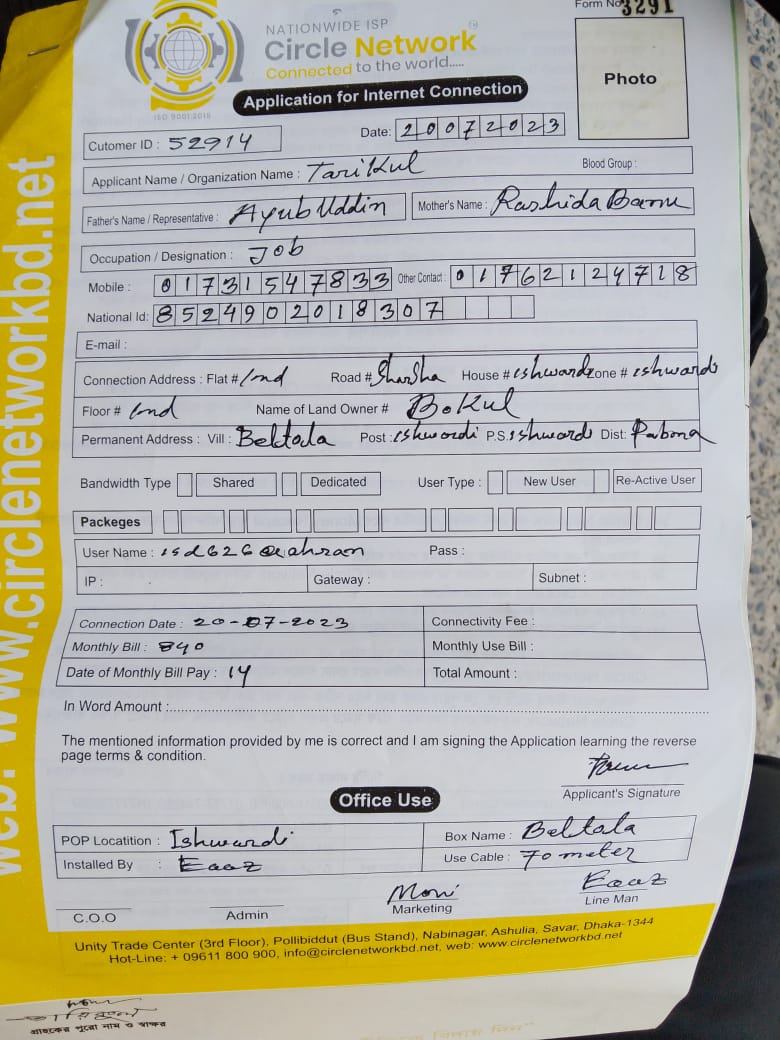 Form No 3291
NATIONWIDE ISP
Circle Network
Connected to the world.....
ISO 9001:2015
Photo
Application for Internet Connection
Cutomer ID : 52914
Date: 20072023
Applicant Name / Organization Name : Tarikul Blood Group :
Father's Name / Representative : Ayub Uddin Mother's Name : Rashida Banu
Occupation / Designation : Job
Mobile : 01731547833 Other Contact : 01762124718
National Id: 8524902018307
E-mail :
Connection Address : Flat # Road # Sharsha House # ishwardi Zone # ishwardi
Floor # Name of Land Owner # Bokul
Permanent Address : Vill : Beltala Post : ishwordi P.S. ishwardi Dist: Pabona
Bandwidth Type Shared Dedicated User Type : New User Re-Active User
Packeges
User Name : Pass :
IP : Gateway : Subnet :
Connection Date : 20-07-2023 Connectivity Fee :
Monthly Bill : 840 Monthly Use Bill :
Date of Monthly Bill Pay : 14 Total Amount :
In Word Amount :
The mentioned information provided by me is correct and I am signing the Application learning the reverse
page terms & condition.
Applicant's Signature
Office Use
POP Locatition : Ishwardi Box Name : Beltala
Installed By : Eaaz Use Cable : 70 meter
Moni Eaaz
C.O.O Admin Marketing Line Man
Unity Trade Center (3rd Floor), Pollibiddut (Bus Stand), Nabinagar, Ashulia, Savar, Dhaka-1344
Hot-Line: + 09611 800 900, info@circlenetworkbd.net, web: www.circlenetworkbd.net
গ্রাহকের পুরো নাম ও স্বাক্ষর
web: www.circlenetworkbd.net